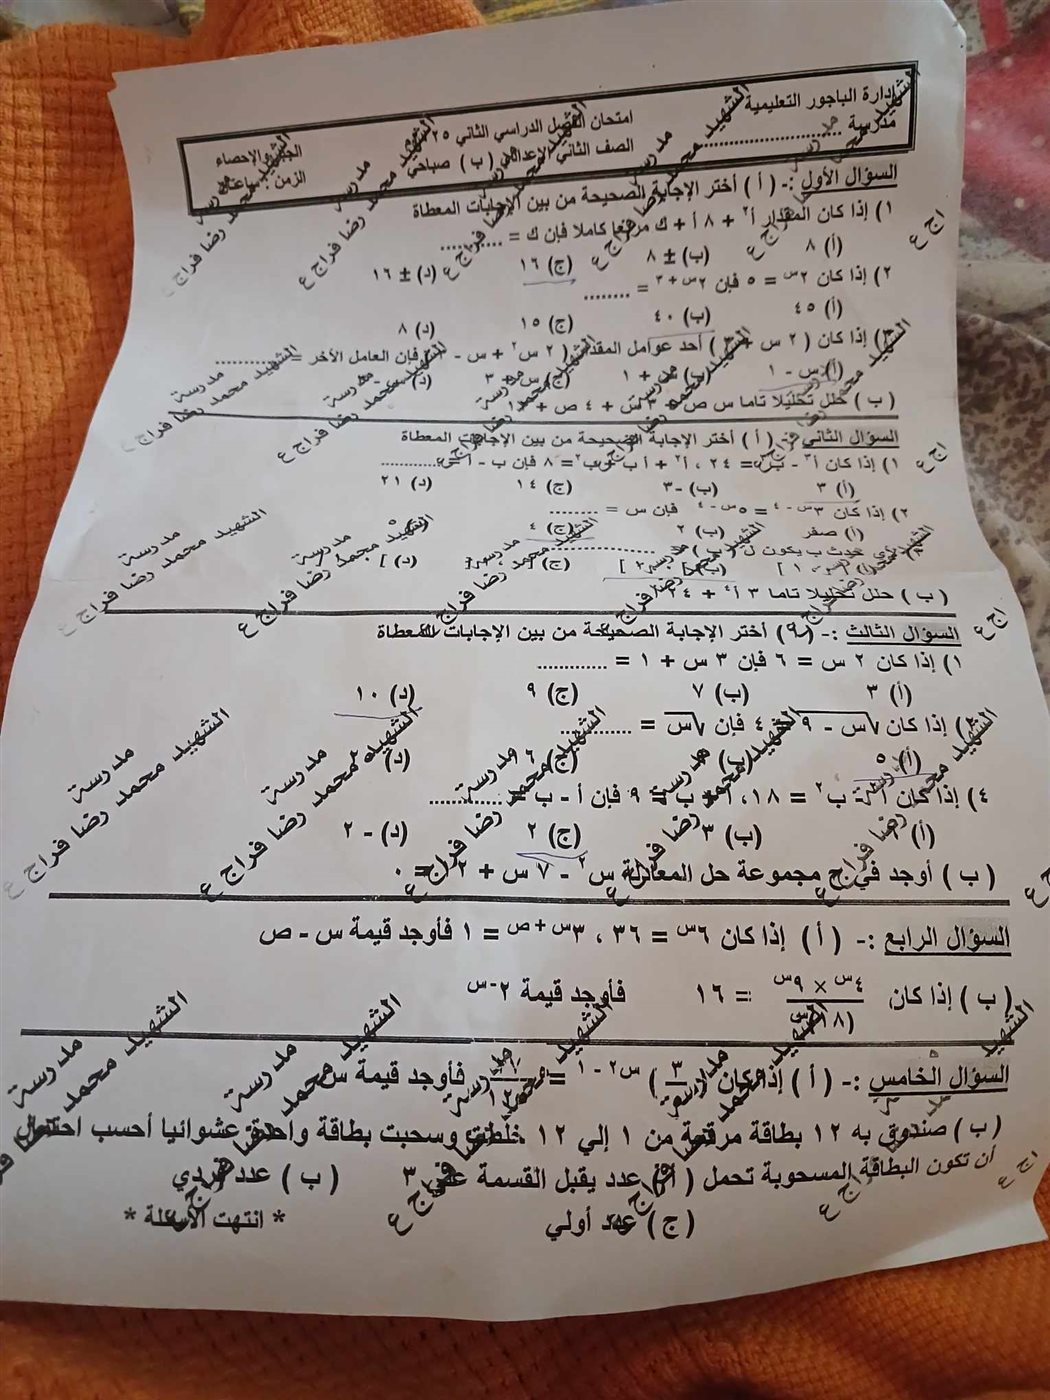 إدارة الباجور التعليمية
مدرسة ....................
امتحان الفصل الدراسي الثاني ٢٥
الصف الثاني الإعدادي ( ب ) صباحي
الجبر والإحصاء
الزمن : ساعتان
السؤال الأول :- ( أ ) أختر الإجابة الصحيحة من بين الإجابات المعطاة
١) إذا كان المقدار أ٢ + ٨ أ + ك مربعا كاملا فإن ك = ...........
(أ) ٨ (ب) ± ٨ (ج) ١٦ (د) ± ١٦
٢) إذا كان ٢س = ٥ فإن ٢س + ٣ = ........
(أ) ٤٥ (ب) ٤٠ (ج) ١٥ (د) ٨
٣) إذا كان ( ٢ س + ٣ ) أحد عوامل المقدار ( ٢ س٢ + س - ) فإن العامل الأخر = ............
(أ) س - ١ (ب) + ١ (ج) س + ٣ (د)
( ب ) حلل تحليلا تاما س ص + ٣ س + ٤ ص + ١٢
السؤال الثاني :- ( أ ) أختر الإجابة الصحيحة من بين الإجابات المعطاة
١) إذا كان أ٣ - ب٣ = ٢٤ ، أ٢ + أ ب + ب٢ = ٨ فإن ب - أ = ...........
(أ) ٣ (ب) -٣ (ج) ١٤ (د) ٢١
٢) إذا كان ٣س - ٤ = ٥س - ٤ فإن س = .........
(أ) صفر (ب) ٢ (ج) ٤ (د)
حدث ب يكون ل ( ب )
( ب ) حلل تحليلا تاما ٣ أ٤ + ٢٤ أ
السؤال الثالث :- ( ) أختر الإجابة الصحيحة من بين الإجابات المعطاة
١) إذا كان ٢ س = ٦ فإن ٣ س + ١ = ............
(أ) ٣ (ب) ٧ (ج) ٩ (د) ١٠
إذا كان √س - ٩ = ٤ فإن √س = ............
(أ) ٥ (ب) (ج) ٦ (د)
٤) إذا كان أ٢ - ب٢ = ١٨ ، أ + ب = ٩ فإن أ - ب = ............
(أ) (ب) ٣ (ج) ٢ (د) - ٢
( ب ) أوجد في ح مجموعة حل المعادلة س٢ - ٧ س + ١٢ = ٠
السؤال الرابع :- ( أ ) إذا كان ٦س = ٣٦ ، ٣س + ص = ١ فأوجد قيمة س - ص
( ب ) إذا كان ٤س × ٩س / (١٨)س = ١٦ فأوجد قيمة ٢-س
السؤال الخامس :- ( أ ) إذا كان ( ٣ / ) س٢ - ١ = فأوجد قيمة س
( ب ) صندوق به ١٢ بطاقة مرقمة من ١ إلي ١٢ خلطت وسحبت بطاقة واحدة عشوائيا أحسب احتمال
أن تكون البطاقة المسحوبة تحمل ( أ ) عدد يقبل القسمة علي ٣ ( ب ) عدد فردي
( ج ) عدد أولي
* انتهت الأسئلة *
مدرسة الشهيد محمد رضا فراج ع